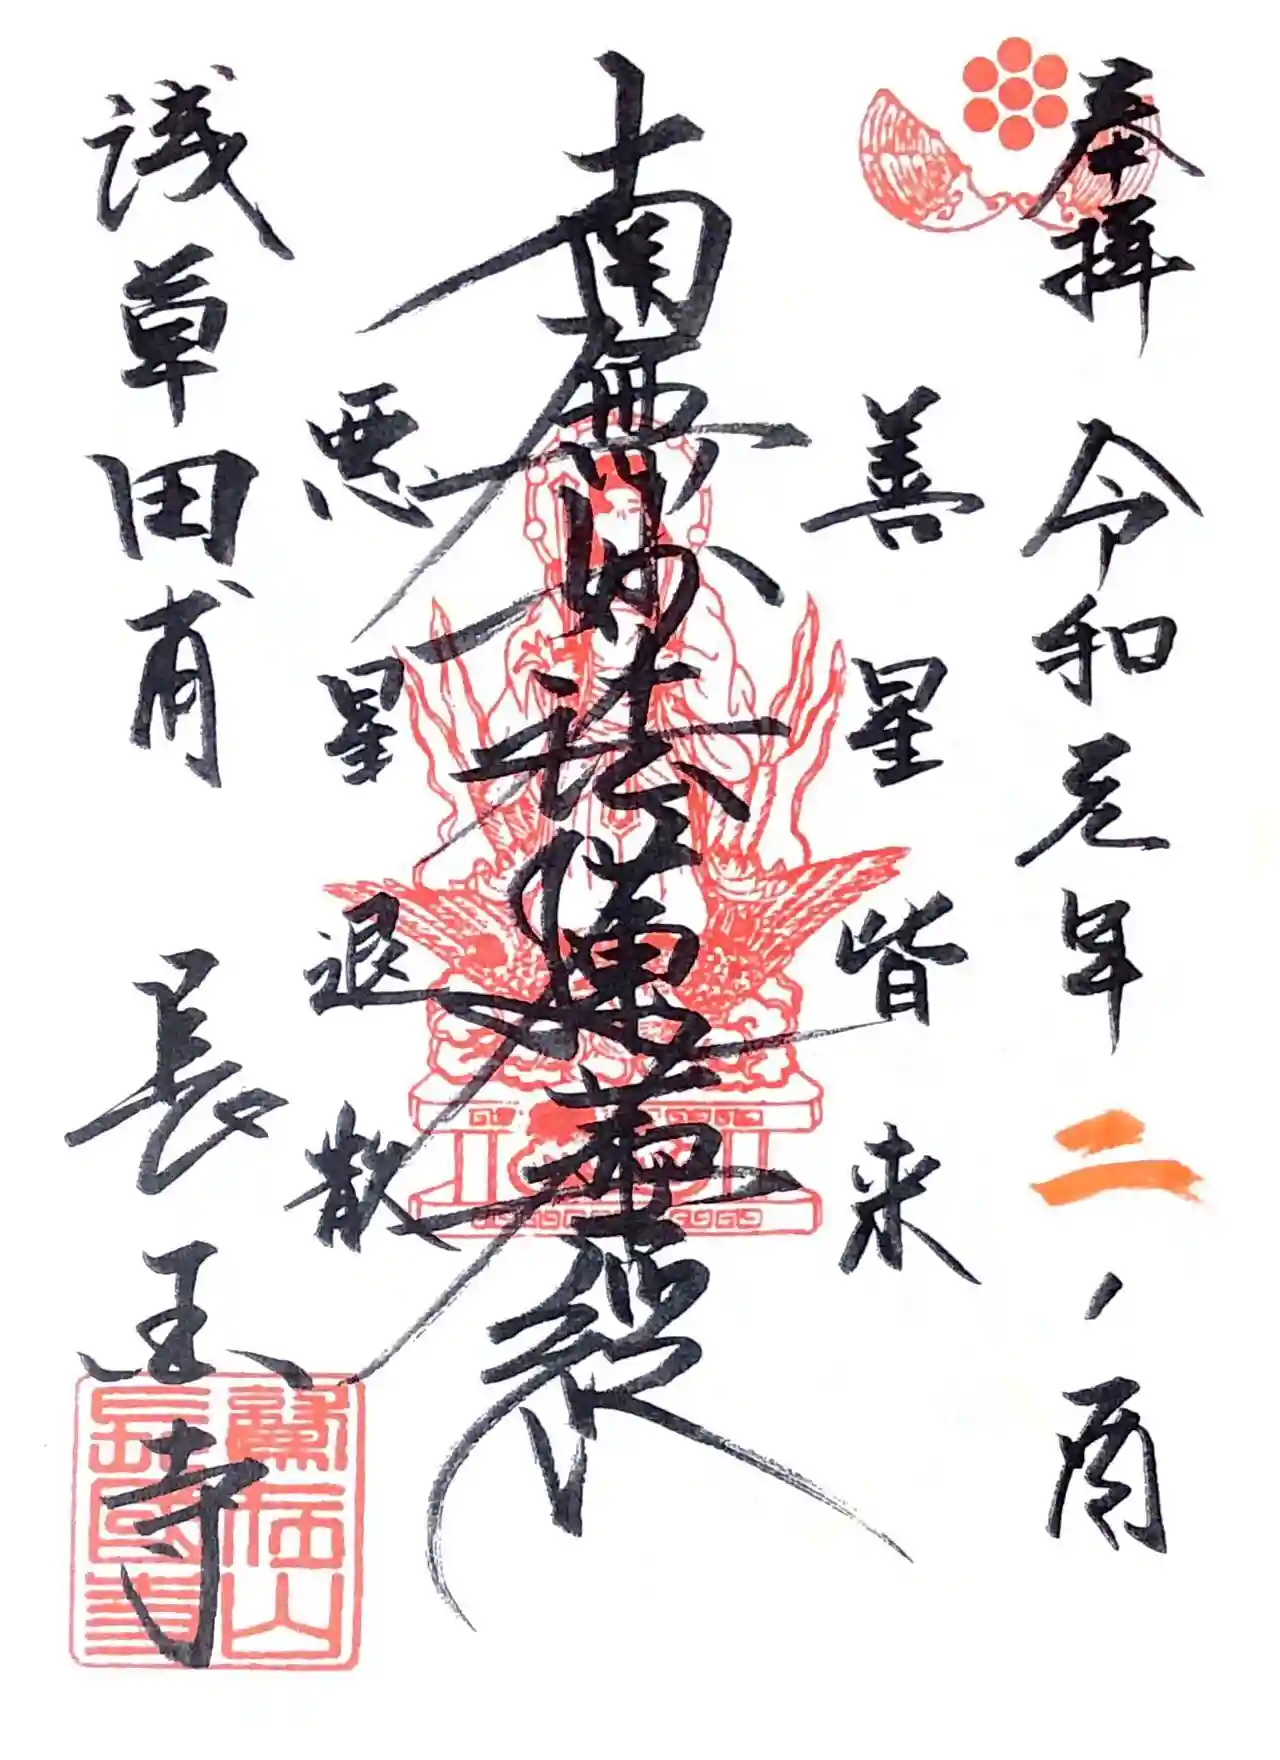 奉拝 令和元年 二ノ酉
善星皆来
南無妙法蓮華経
悪星退散
浅草田甫 長国寺
鷲在山
長國寺